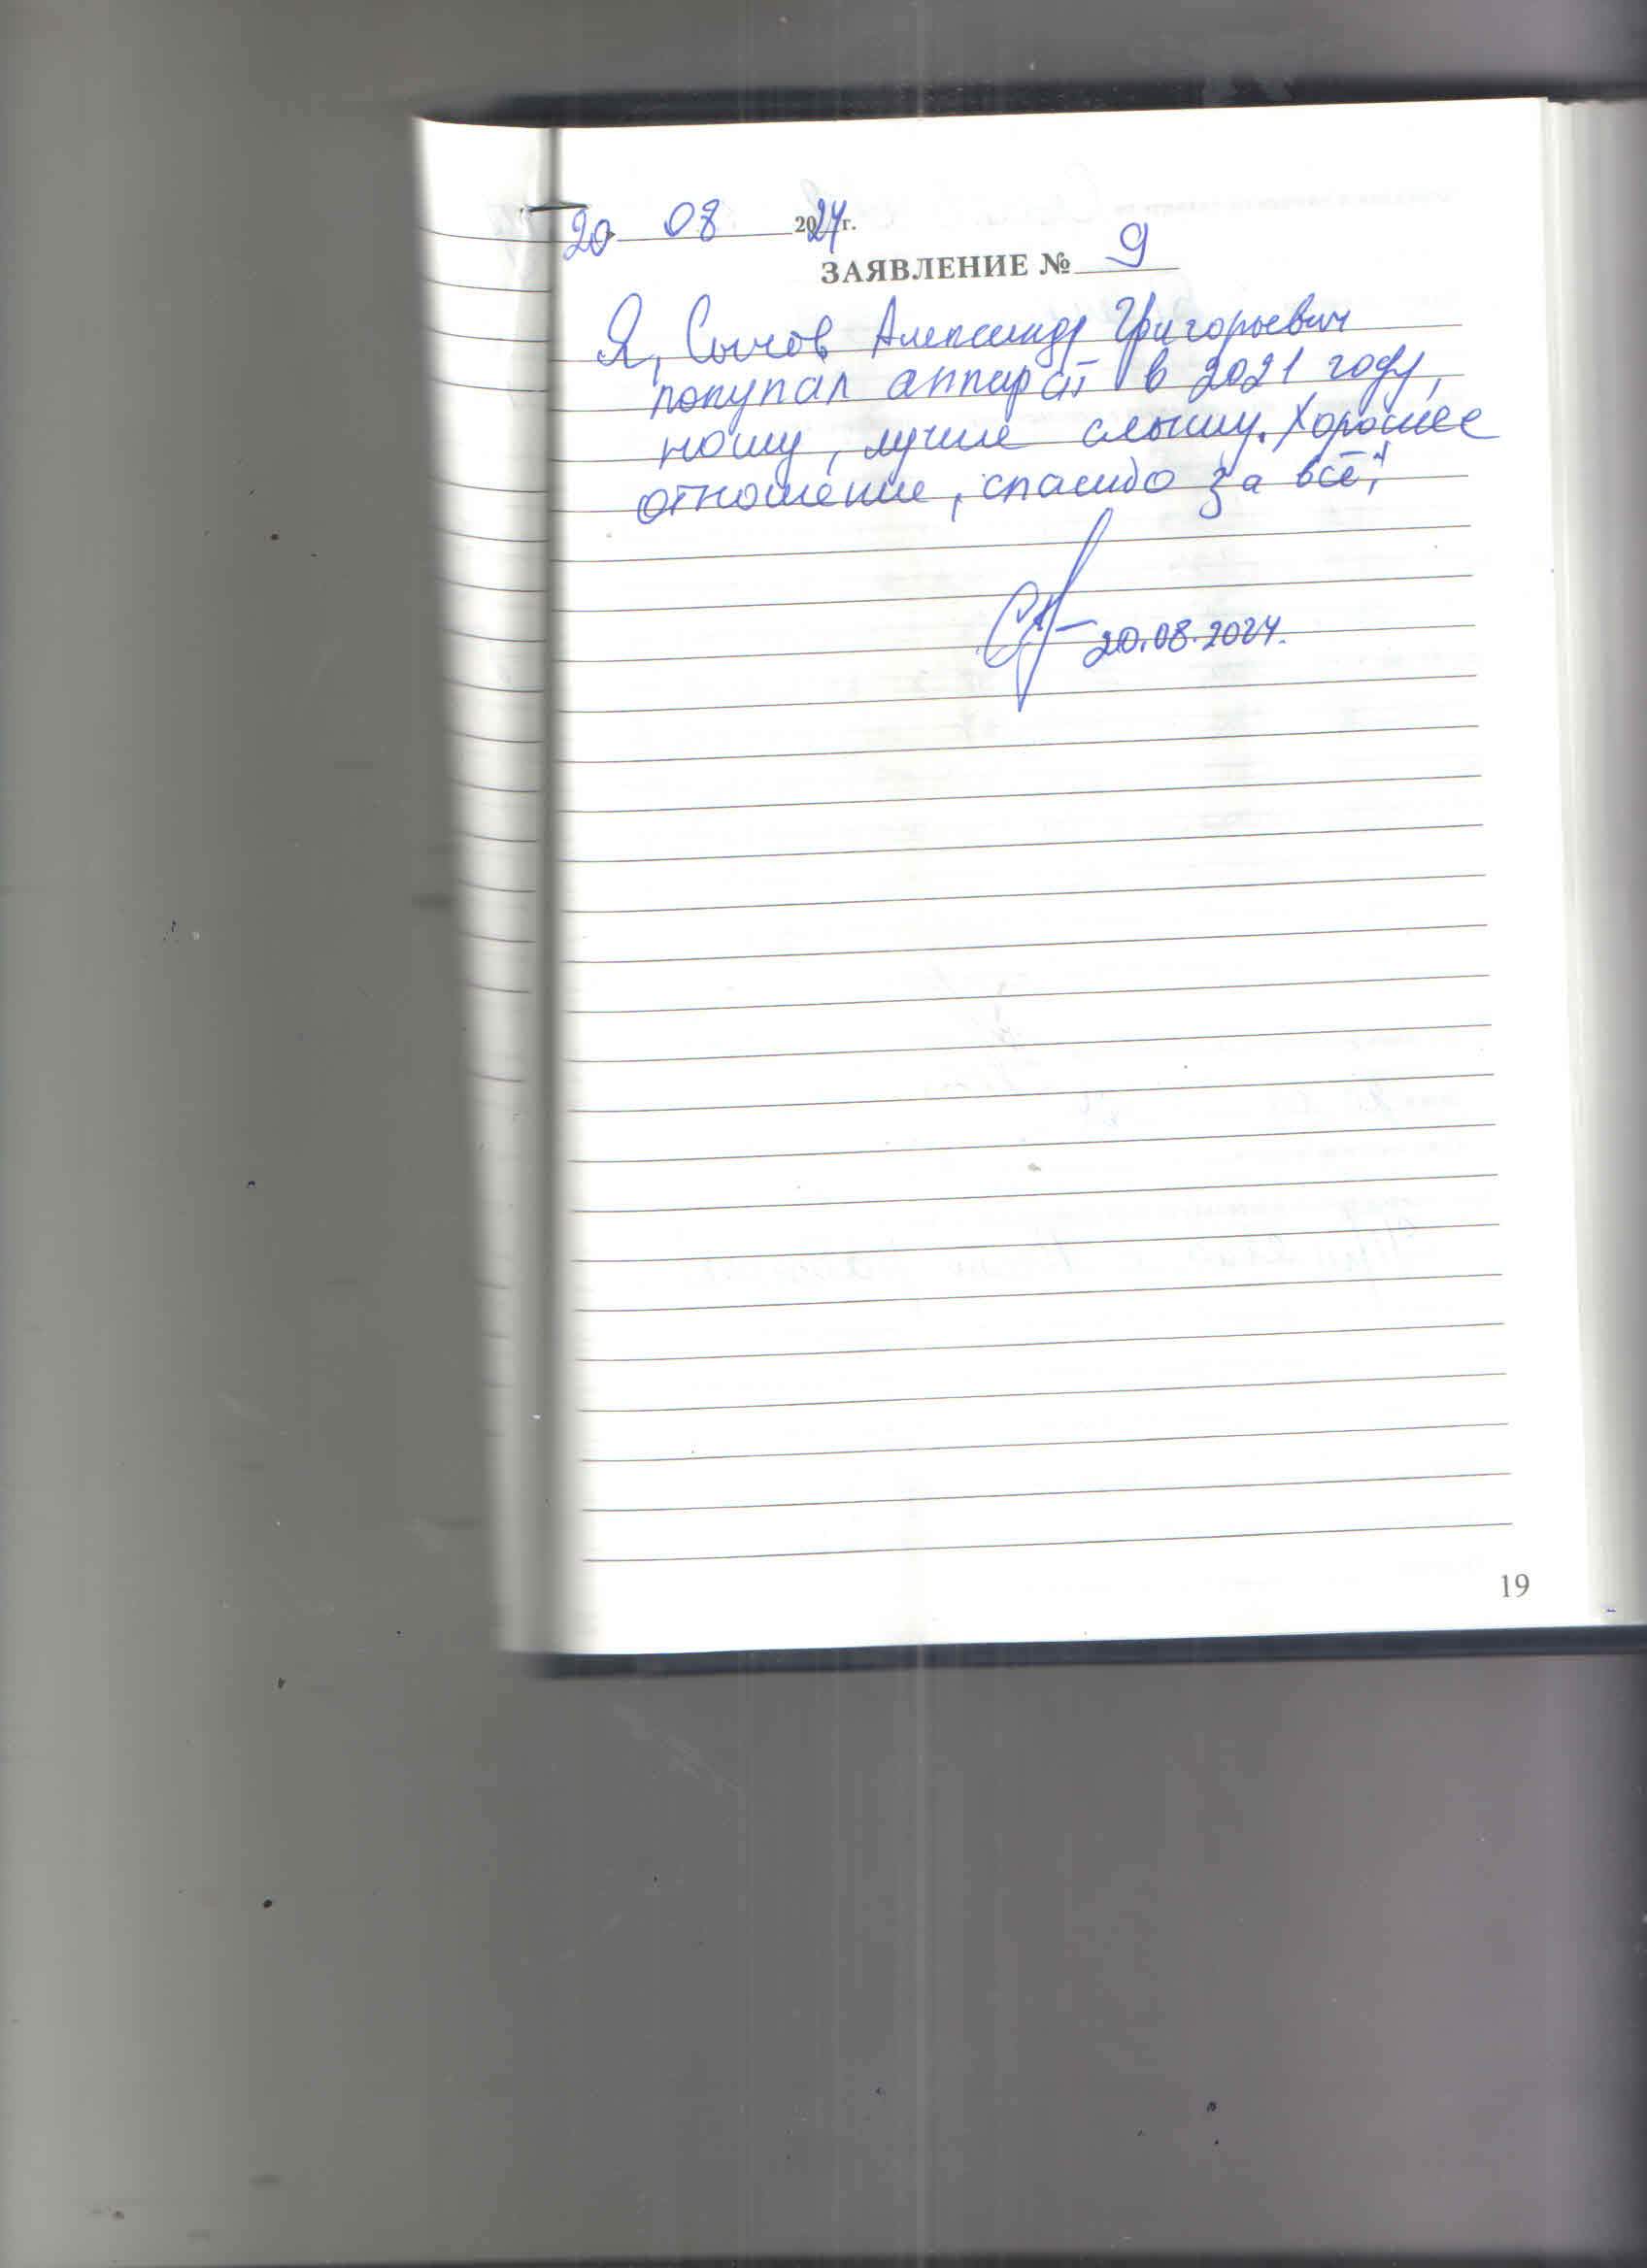 20 08 2024г.
ЗАЯВЛЕНИЕ № 9
Я, Сычов Александр Григорьевич
покупал аппарат в 2021 году,
ношу, лучше слышу. Хорошее
отношение, спасибо за всё!
20.08.2024.
19